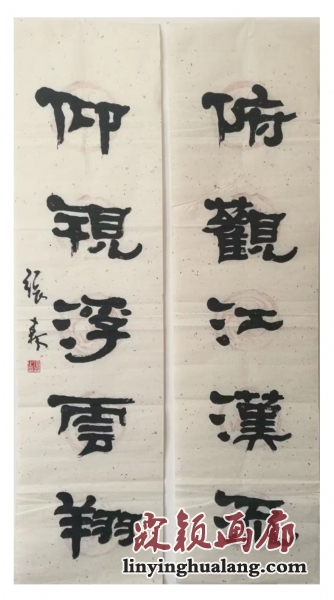 俯觀江漢流
仰視浮雲翔
張森
霖颖画廊
linyinghualang.com